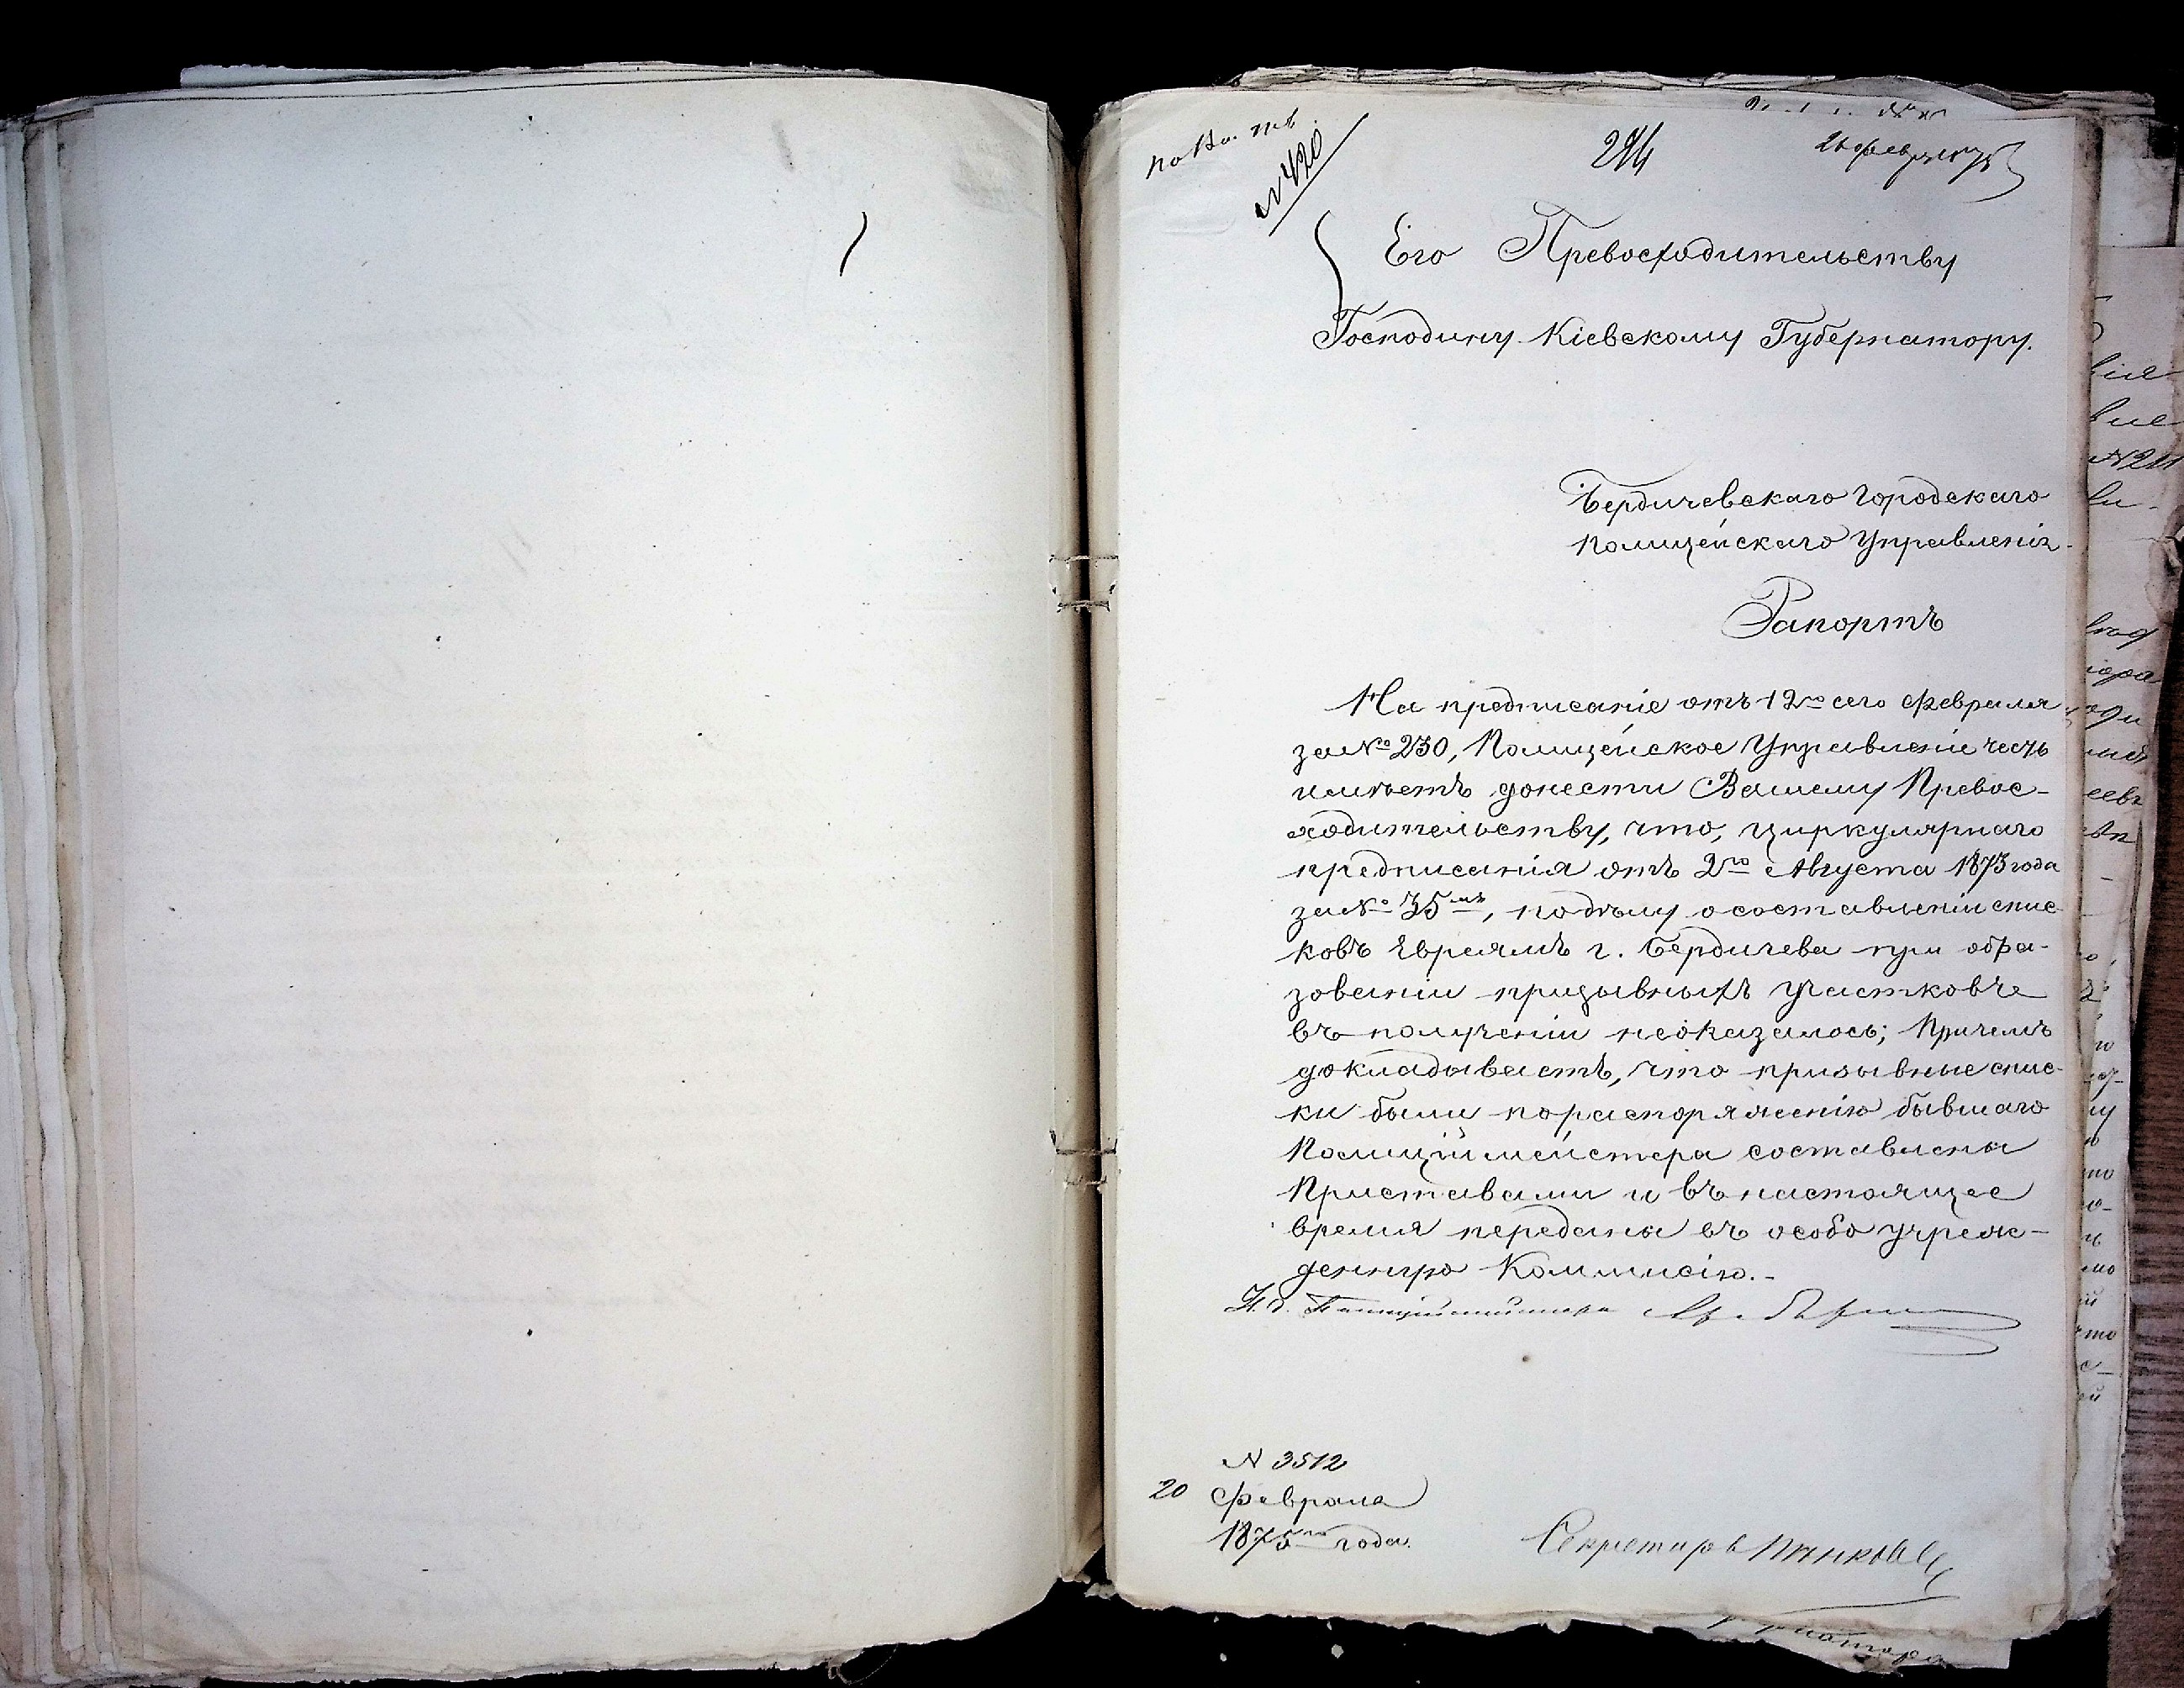 № 420
294
21 февр 1875
Его Превосходительству
Господину Кіевскому Губернатору.
Бердичевскаго Городскаго
Полицейскаго Управленія
Рапортъ
На предписаніе отъ 12го сего Февраля
за № 230, Полицейское Управленіе честь
имѣетъ донести Вашему Превос-
ходительству, что, циркулярнаго
предписанія отъ 2го Августа 1873 года
за № 35мъ, по дѣлу о составленіи спис
ковъ Евреямъ г. Бердичева при обра-
зованіи призывныхъ участковъ
въ полученіи неоказалось; Причемъ
докладываетъ, что призывные спис-
ки были по распоряженію бывшаго
Полиційместера составлены
Приставами и въ настоящее
время переданы въ особо учреж-
денную Коммисію.-
И. д. Полиціймейстера
N 3512
20 Февраля
1875го года.
Секретарь